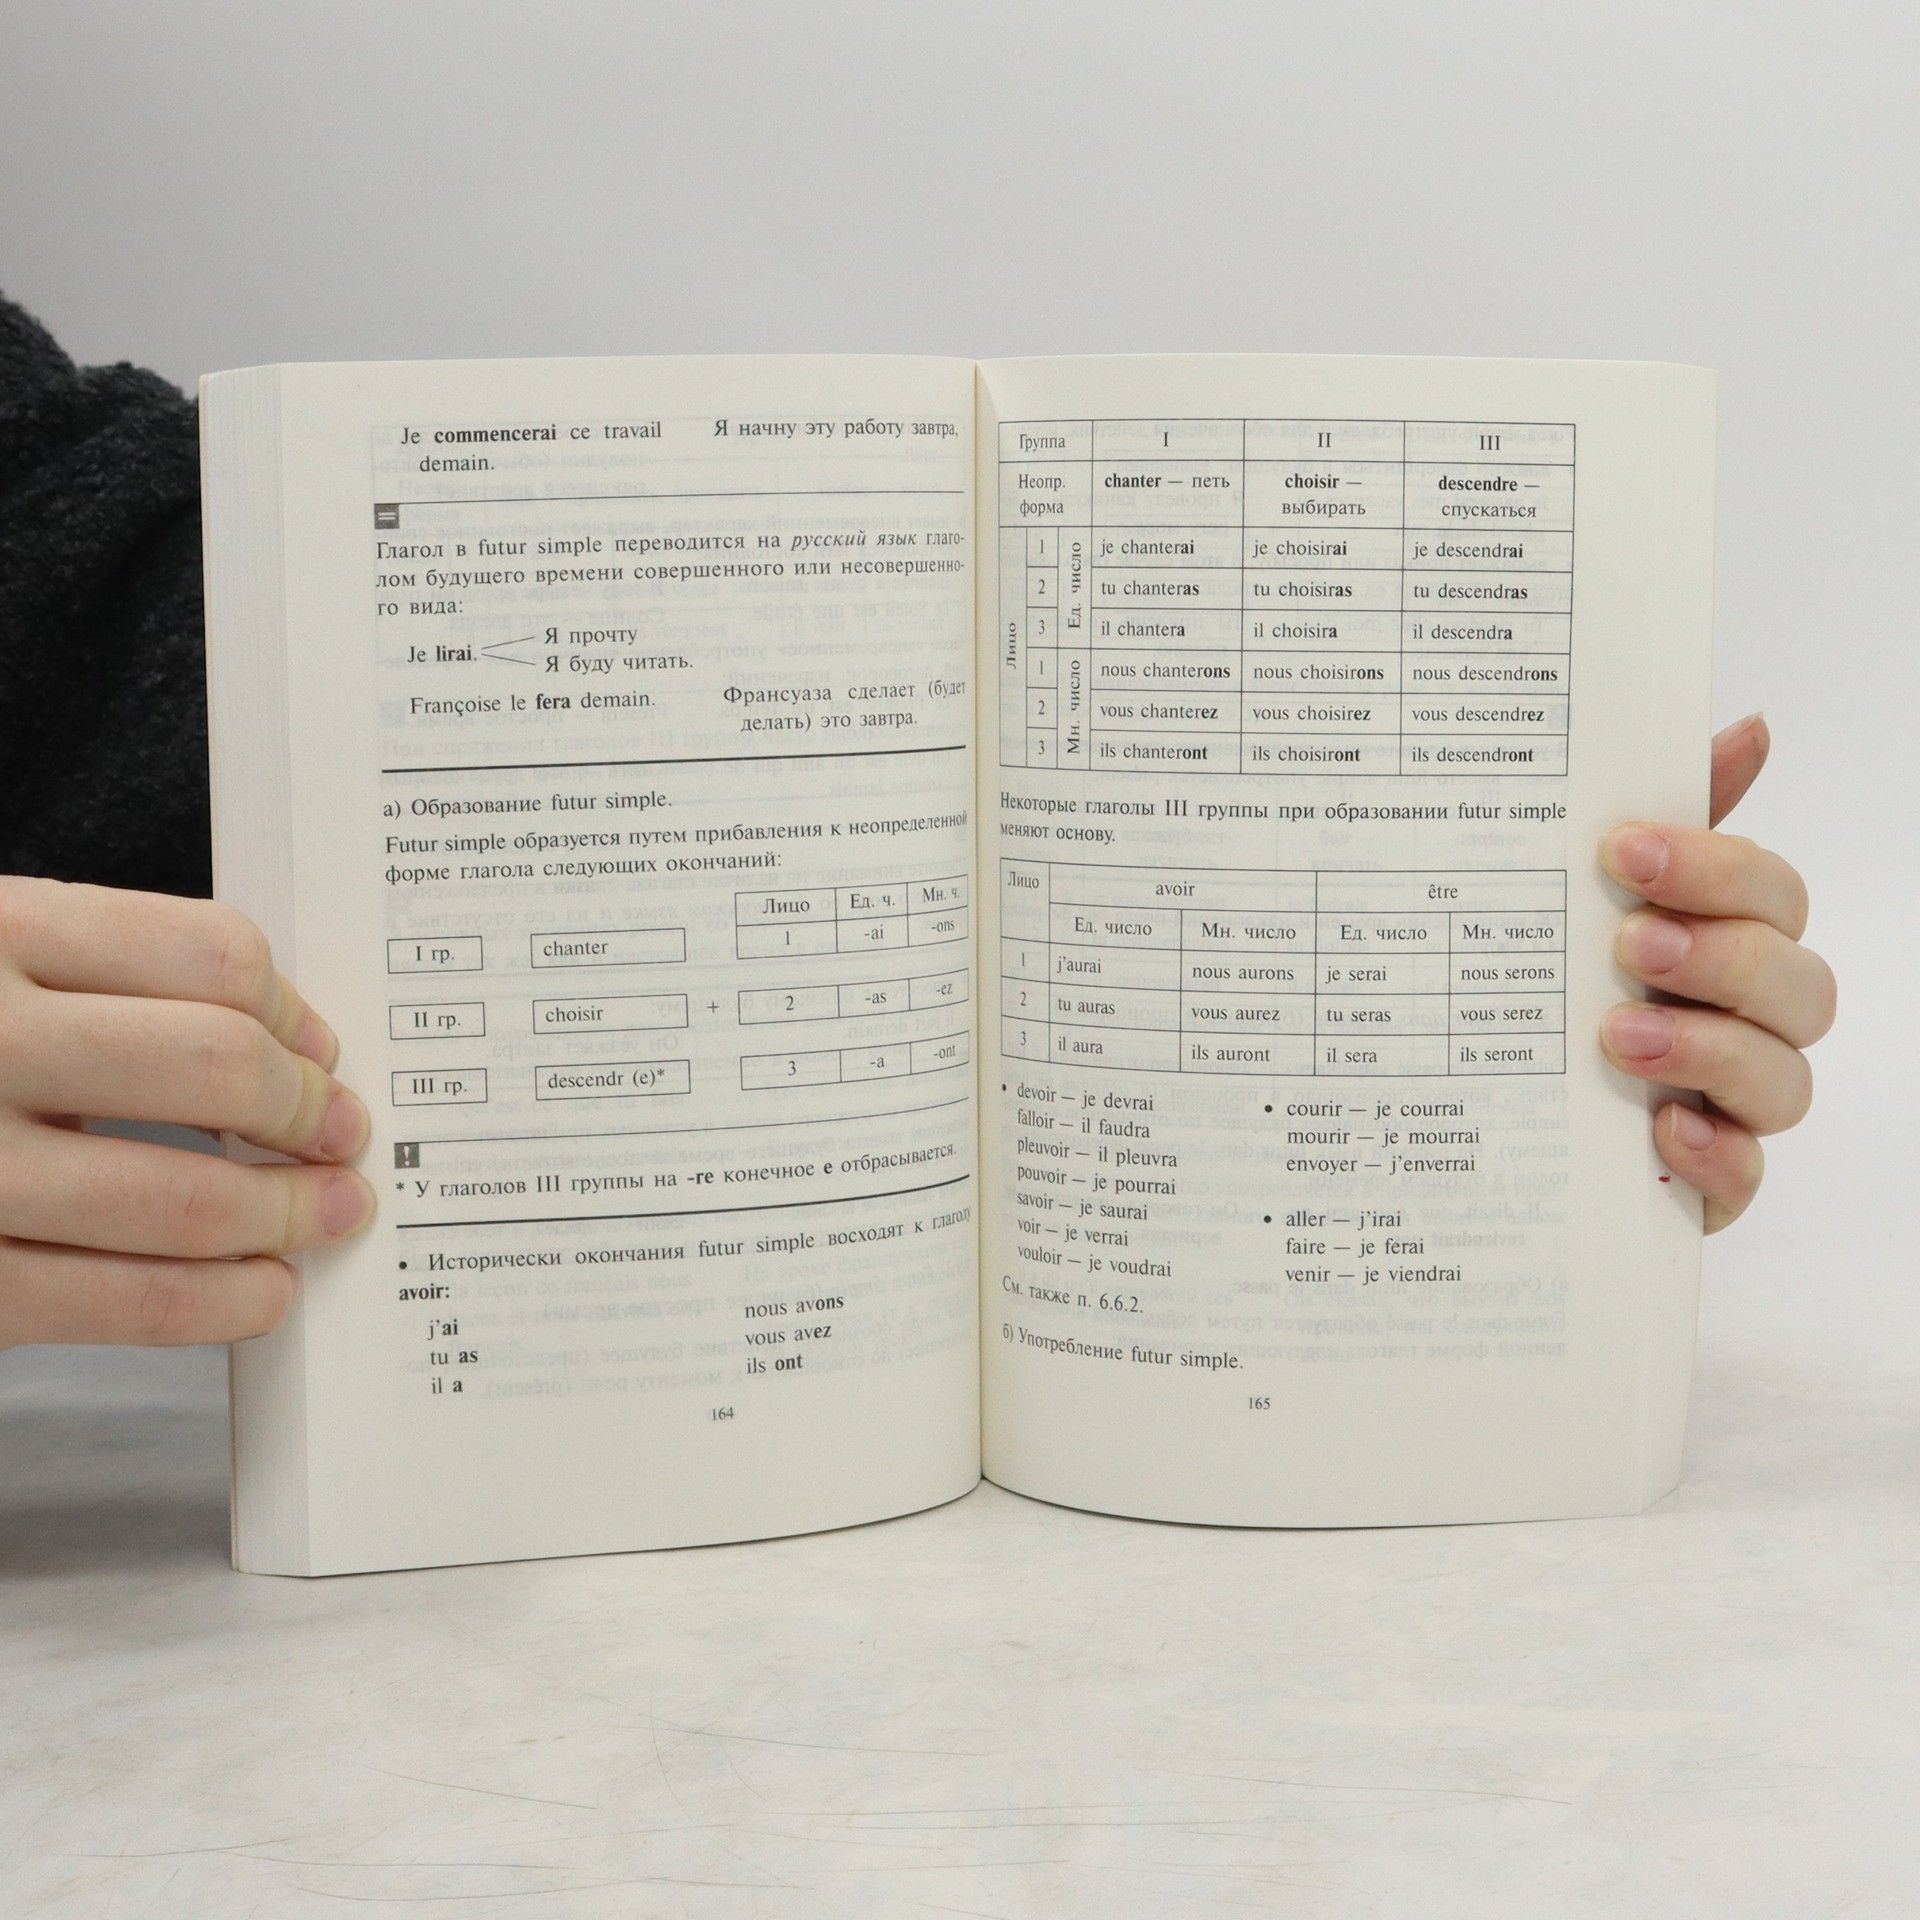 Je commencerai ce travail Я начну эту работу завтра,
demain.
=
Глагол в futur simple переводится на русский язык глаго-
лом будущего времени совершенного или несовершенно-
го вида:
Я прочту
Je lirai.
Я буду читать.
Françoise le fera demain. Франсуаза сделает (будет
делать) это завтра.
а) Образование futur simple.
Futur simple образуется путем прибавления к неопределенной
форме глагола следующих окончаний:
Лицо Ед. ч. Мн. ч.
I гр. chanter 1 -ai -ons
II гр. choisir + 2 -as -ez
III гр. descendr (e)* 3 -a -ont
!
* У глаголов III группы на -re конечное e отбрасывается.
• Исторически окончания futur simple восходят к глаголу
avoir:
j'ai nous avons
tu as vous avez
il a ils ont
164
Группа I II III
Неопр. форма chanter — петь choisir — выбирать descendre — спускаться
Лицо
Ед. число
1 je chanterai je choisirai je descendrai
2 tu chanteras tu choisiras tu descendras
3 il chantera il choisira il descendra
Мн. число
1 nous chanterons nous choisirons nous descendrons
2 vous chanterez vous choisirez vous descendrez
3 ils chanteront ils choisiront ils descendront
Некоторые глаголы III группы при образовании futur simple
меняют основу.
Лицо avoir être
Ед. число Мн. число Ед. число Мн. число
1 j'aurai nous aurons je serai nous serons
2 tu auras vous aurez tu seras vous serez
3 il aura ils auront il sera ils seront
• devoir — je devrai
falloir — il faudra
pleuvoir — il pleuvra
pouvoir — je pourrai
savoir — je saurai
voir — je verrai
vouloir — je voudrai
• courir — je courrai
mourir — je mourrai
envoyer — j'enverrai
• aller — j'irai
faire — je ferai
venir — je viendrai
См. также п. 6.6.2.
б) Употребление futur simple.
165